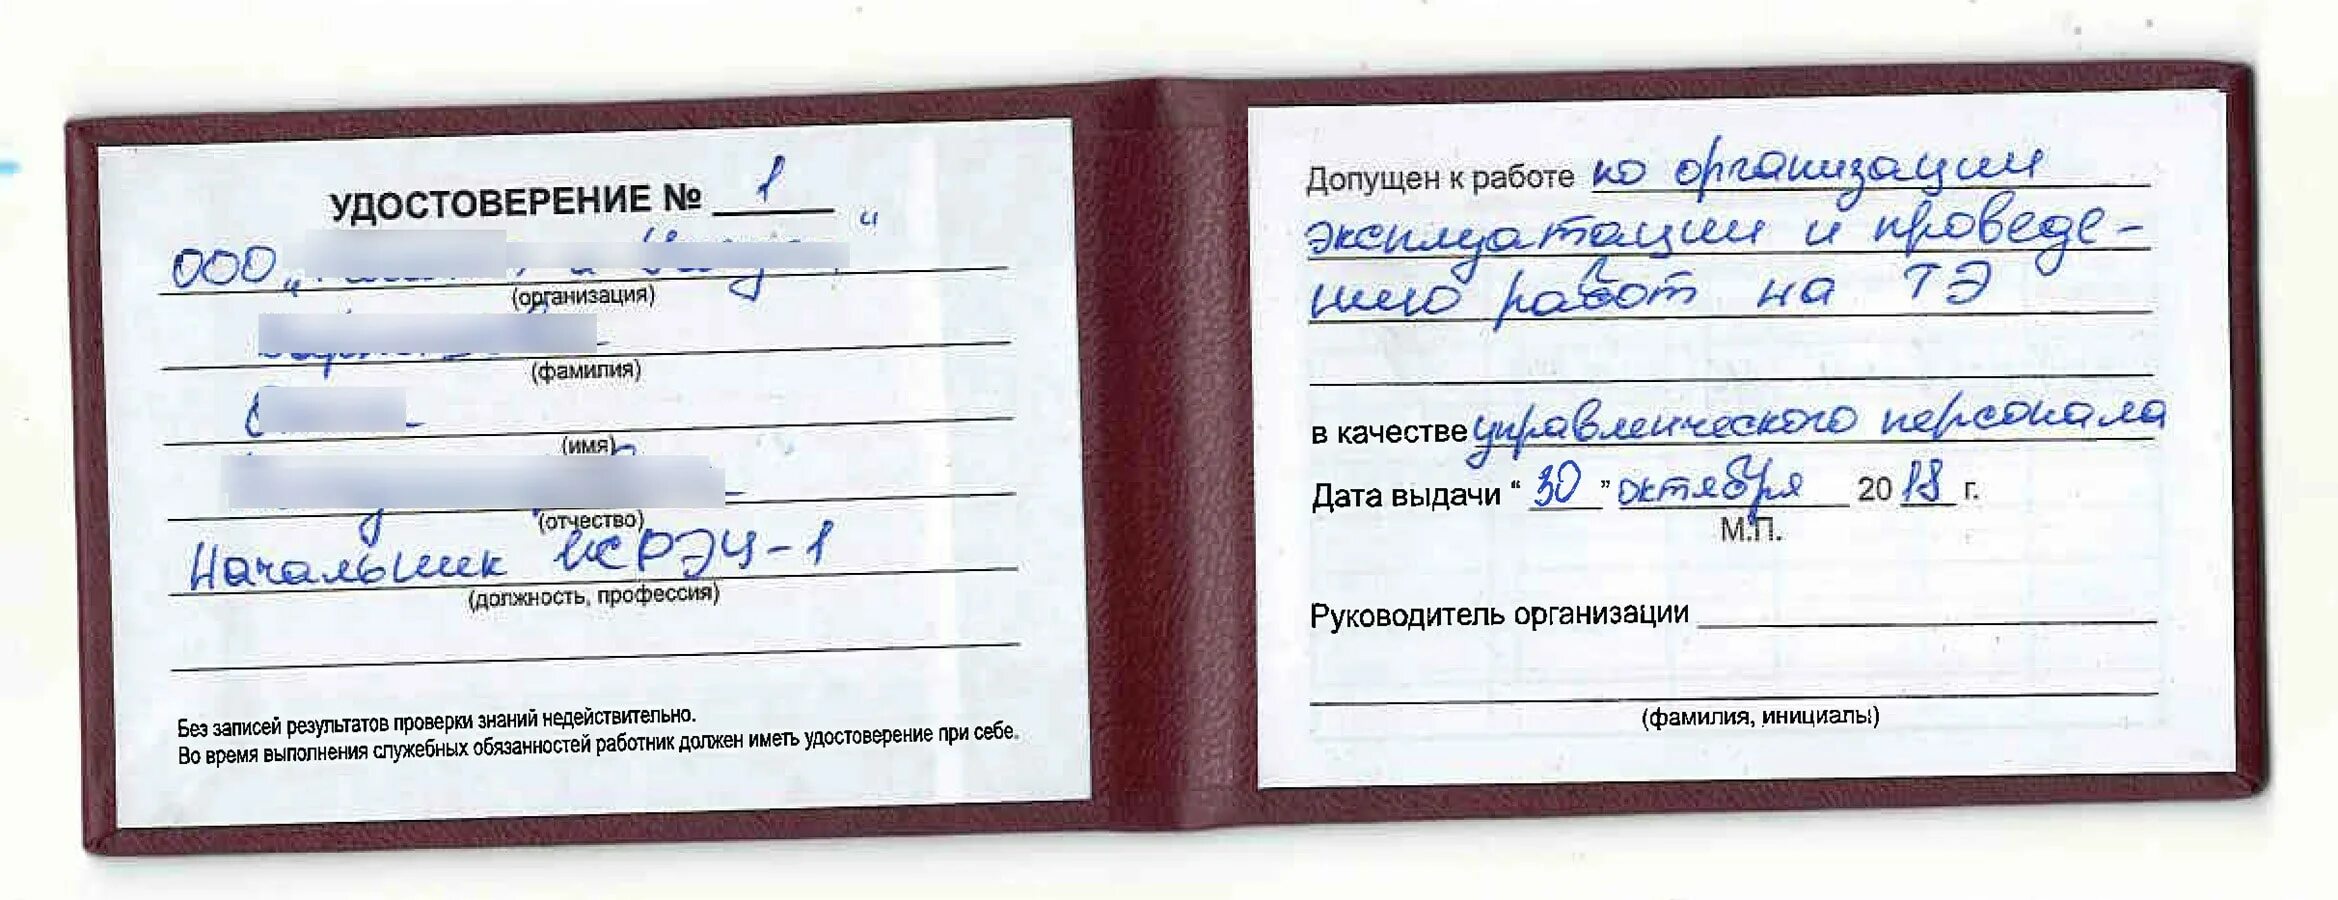 УДОСТОВЕРЕНИЕ № 1
ООО „ “
(организация)
(фамилия)
(имя)
(отчество)
Начальник ЖРЭЦ-1
(должность, профессия)
Без записей результатов проверки знаний недействительно.
Во время выполнения служебных обязанностей работник должен иметь удостоверение при себе.
Допущен к работе по организации
эксплуатации и проведе-
нию работ на ТЭ
в качестве управленческого персонала
Дата выдачи “ 30 ” октября 2018 г.
М.П.
Руководитель организации
(фамилия, инициалы)